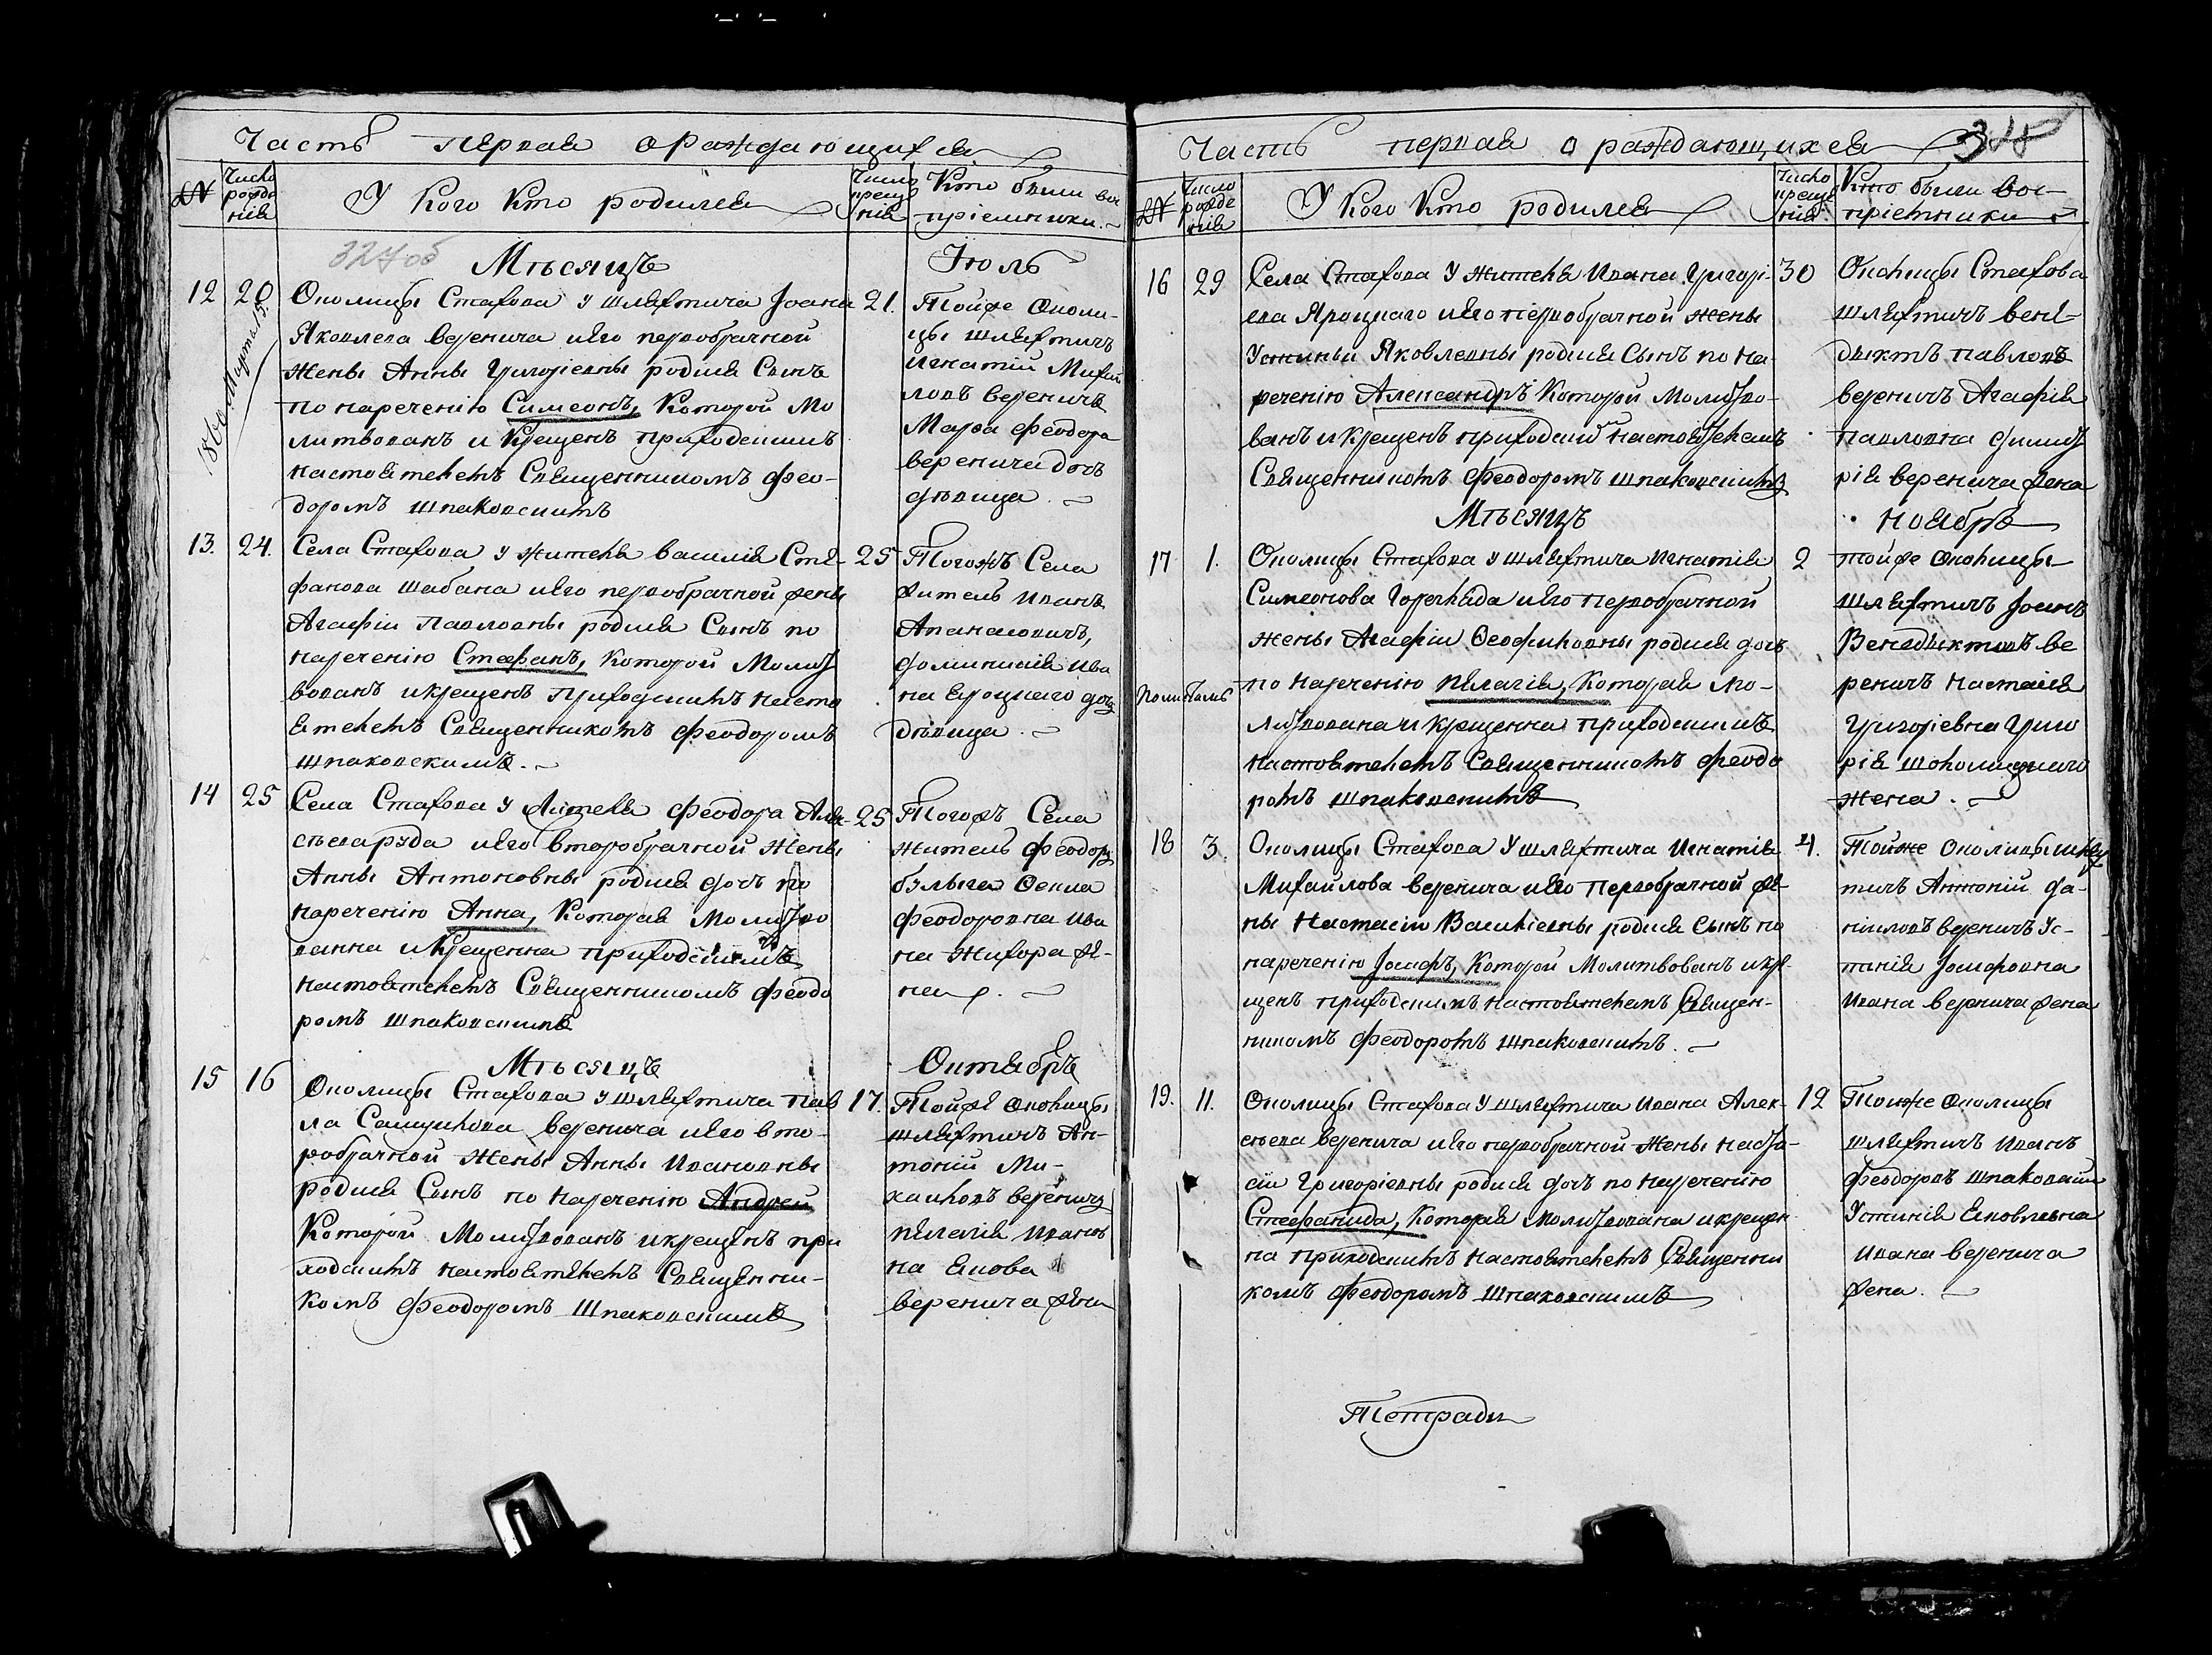 Часть первая о раждающихся
№
Число рожденія
У кого кто родился
Число крещенія
Кто были воспріемники
327об
Мѣсяцъ Іюль
12 20 Околицы Стахова у шляхтича Іоана 21.
Яковлева Веренича и его первобрачной
жены Анны Григоріевны родися Сынъ
по нареченію Симеонъ, Которой Мо
литвованъ и Крещенъ приходскимъ
настоятелемъ Священникомъ Фео-
доромъ Шпаковскимъ
Тойже Околи-
цы шляхтичъ
Игнатій Михай
ловъ Вереничъ
Марѳа Феодора
Веренича дочь
дѣвица
13. 24. Села Стахова у жителя Василія Сте- 25
фанова Шабана и его первобрачной жены
Агафіи Павловны родися Сынъ по
нареченію Стефанъ, которой Молит
вованъ и крещенъ приходскимъ насто
ятелемъ Священникомъ Феодоромъ
Шпаковскимъ.
Тогожъ Села
житель Иванъ
Апанасовичъ,
Доминикія Ива
на Яроцкаго дочь
дѣвица
14 25 Села Стахова у жителя Феодора Але- 25
ксѣева его второбрачной жены
Анны Антоновны родися дочь по
нареченію Анна, Которая Молитво
ванна и Крещенна приходскимъ
настоятелемъ Священникомъ Феодо
ромъ Шпаковскимъ
Тогожъ Села
житель Феодоръ
Булыга
Феодоровна Ива
на Жихора же-
на
Мѣсяцъ Октябрь
15 16 Околицы Стахова у шляхтича Пав 17.
ла Самуилова Веренича и его вто-
робрачной жены Анны Ивановны
родися Сынъ по нареченію Андрей
Которой Молитвованъ и крещенъ при
ходскимъ настоятелемъ Священни-
комъ Феодоромъ Шпаковскимъ
Тойже Околицы
шляхтичъ Ан-
тоній Ми-
хаиловъ Вереничъ
Пелагія Иванов
на Якова
Веренича жена
Часть первая о раждающихся
№
Число рожденія
У кого кто родился
Число крещенія
Кто были воспріемники
16 29 Села Стахова у жителя Ивана Григорі- 30
ева Яроцкаго и его первобрачной жены
Устиньи Яковлевны родися Сынъ по на-
реченію Александръ Которой Молитво-
ванъ и крещенъ приходским настоятелемъ
Священникомъ Феодоромъ Шпаковскимъ
Околицы Стахова
шляхтичъ Вене-
диктъ Павловъ
Вереничъ Агафія
Павловна Димит
рія Веренича жена
Мѣсяцъ Ноябрь
17 1. Околицы Стахова у шляхтича Игнатія 2
Симеонова и его первобрачной
жены Агафіи Ѳеофиловны родися дочь
по нареченію Пелагія, Которая мо-
литвована и крещенна приходскимъ
настоятелемъ Священникомъ Феодо
ромъ Шпаковскимъ
Тойже Околицы
шляхтичъ Іоанъ
Венедыктовъ Ве
реничъ Настасія
Григоріевна Григо
рія
жена.
18 3. Околицы Стахова у шляхтича Игнатія 4.
Михайлова Веренича и его первобрачной же-
ны Настасіи Василіевны родися Сынъ по
нареченію Іосифъ, Которой Молитвованъ и кре-
щенъ приходскимъ настоятелемъ Священ-
никомъ Феодоромъ Шпаковскимъ.
Тойже Околицы шлях
тичъ Антоній Да-
ніиловъ Вереничъ Ус-
тинія Іосифовна
Ивана Веренича жена
19. 11. Околицы Стахова у шляхтича Ивана Алек- 12
сѣева Веренича и его первобрачной жены Наста-
сіи Григоріевны родися дочь по нареченію
Стефанида, Которая Молитвована и крещен-
на приходскимъ настоятелемъ Священни
комъ Феодоромъ Шпаковскимъ
Тойже Околицы
шляхтичъ Иванъ
Феодоровъ Шпаковскій
Устинія Яковлевна
Ивана Веренича
жена.
Тетради